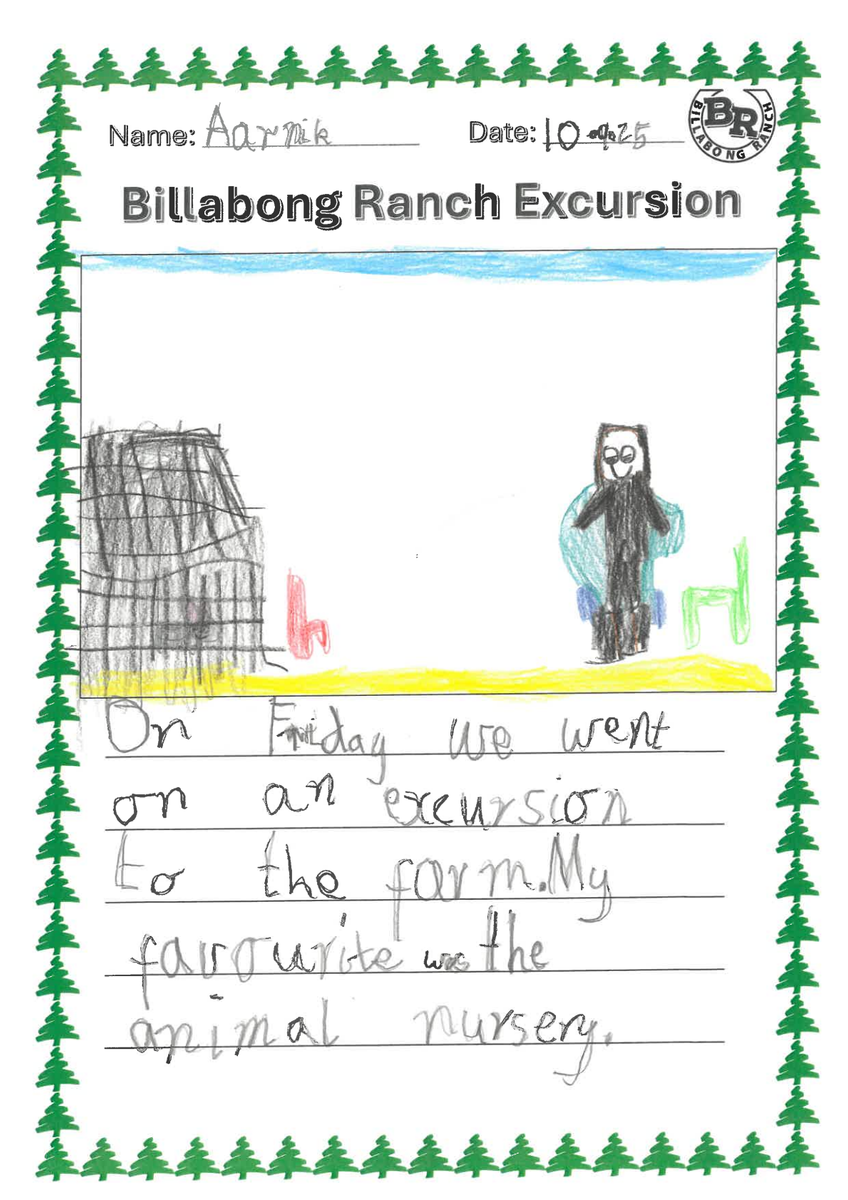 Name: Aarnik Date: 10.09.25
BR
BILLABONG RANCH
Billabong Ranch Excursion
On Friday we went
on an excursion
to the farm. My
favourite was the
animal nursery.